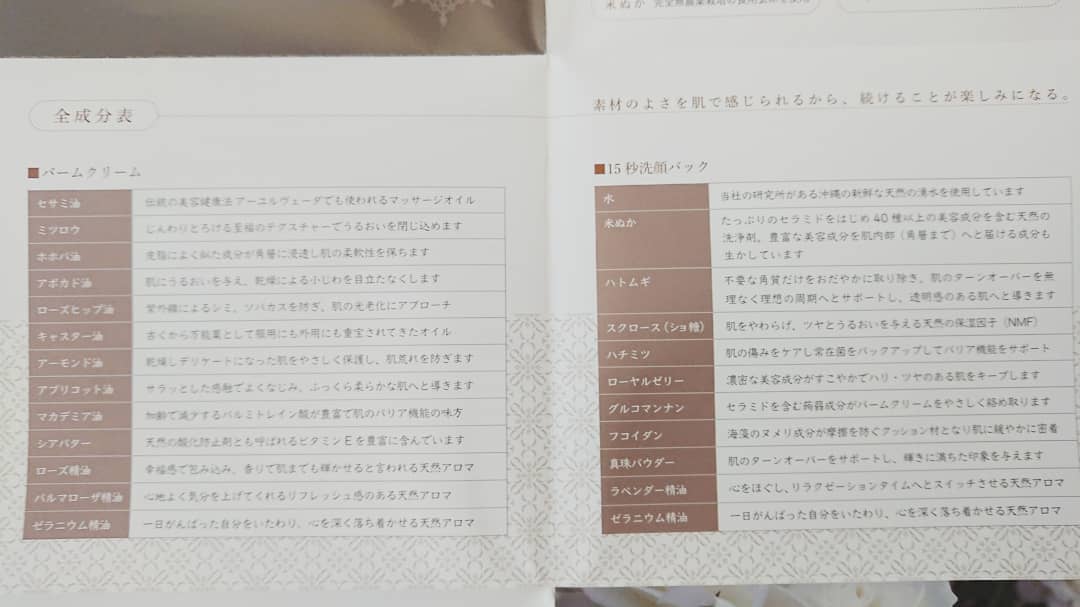 米ぬか
全成分表
素材のよさを肌で感じられるから、続けることが楽しみになる。
■バームクリーム
セサミ油 伝統の美容健康法アーユルヴェーダでも使われるマッサージオイル
ミツロウ じんわりとろける至福のテクスチャーでうるおいを閉じ込めます
ホホバ油 皮脂によく似た成分が角層に浸透し肌の柔軟性を保ちます
アボカド油 肌にうるおいを与え、乾燥による小じわを目立たなくします
ローズヒップ油 紫外線によるシミ、ソバカスを防ぎ、肌の光老化にアプローチ
キャスター油 古くから万能薬として服用にも外用にも重宝されてきたオイル
アーモンド油 乾燥しデリケートになった肌をやさしく保護し、肌荒れを防ぎます
アプリコット油 サラッとした感触でよくなじみ、ふっくら柔らかな肌へと導きます
マカデミア油 加齢で減少するパルミトレイン酸が豊富で肌のバリア機能の味方
シアバター 天然の酸化防止剤とも呼ばれるビタミンEを豊富に含んでいます
ローズ精油 幸福感で包み込み、香りで肌までも輝かせると言われる天然アロマ
パルマローザ精油 心地よく気分を上げてくれるリフレッシュ感のある天然アロマ
ゼラニウム精油 一日がんばった自分をいたわり、心を深く落ち着かせる天然アロマ
■15秒洗顔パック
水 当社の研究所がある沖縄の新鮮な天然の湧水を使用しています
米ぬか たっぷりのセラミドをはじめ40種以上の美容成分を含む天然の
洗浄剤。豊富な美容成分を肌内部（角層まで）へと届ける成分も
生かしています
ハトムギ 不要な角質だけをおだやかに取り除き、肌のターンオーバーを無
理なく理想の周期へとサポートし、透明感のある肌へと導きます
スクロース（ショ糖） 肌をやわらげ、ツヤとうるおいを与える天然の保湿因子（NMF）
ハチミツ 肌の傷みをケアし常在菌をバックアップしてバリア機能をサポート
ローヤルゼリー 濃密な美容成分がすこやかでハリ・ツヤのある肌をキープします
グルコマンナン セラミドを含む蒟蒻成分がバームクリームをやさしく絡め取ります
フコイダン 海藻のヌメリ成分が摩擦を防ぐクッション材となり肌に緩やかに密着
真珠パウダー 肌のターンオーバーをサポートし、輝きに満ちた印象を与えます
ラベンダー精油 心をほぐし、リラクゼーションタイムへとスイッチさせる天然アロマ
ゼラニウム精油 一日がんばった自分をいたわり、心を深く落ち着かせる天然アロマ